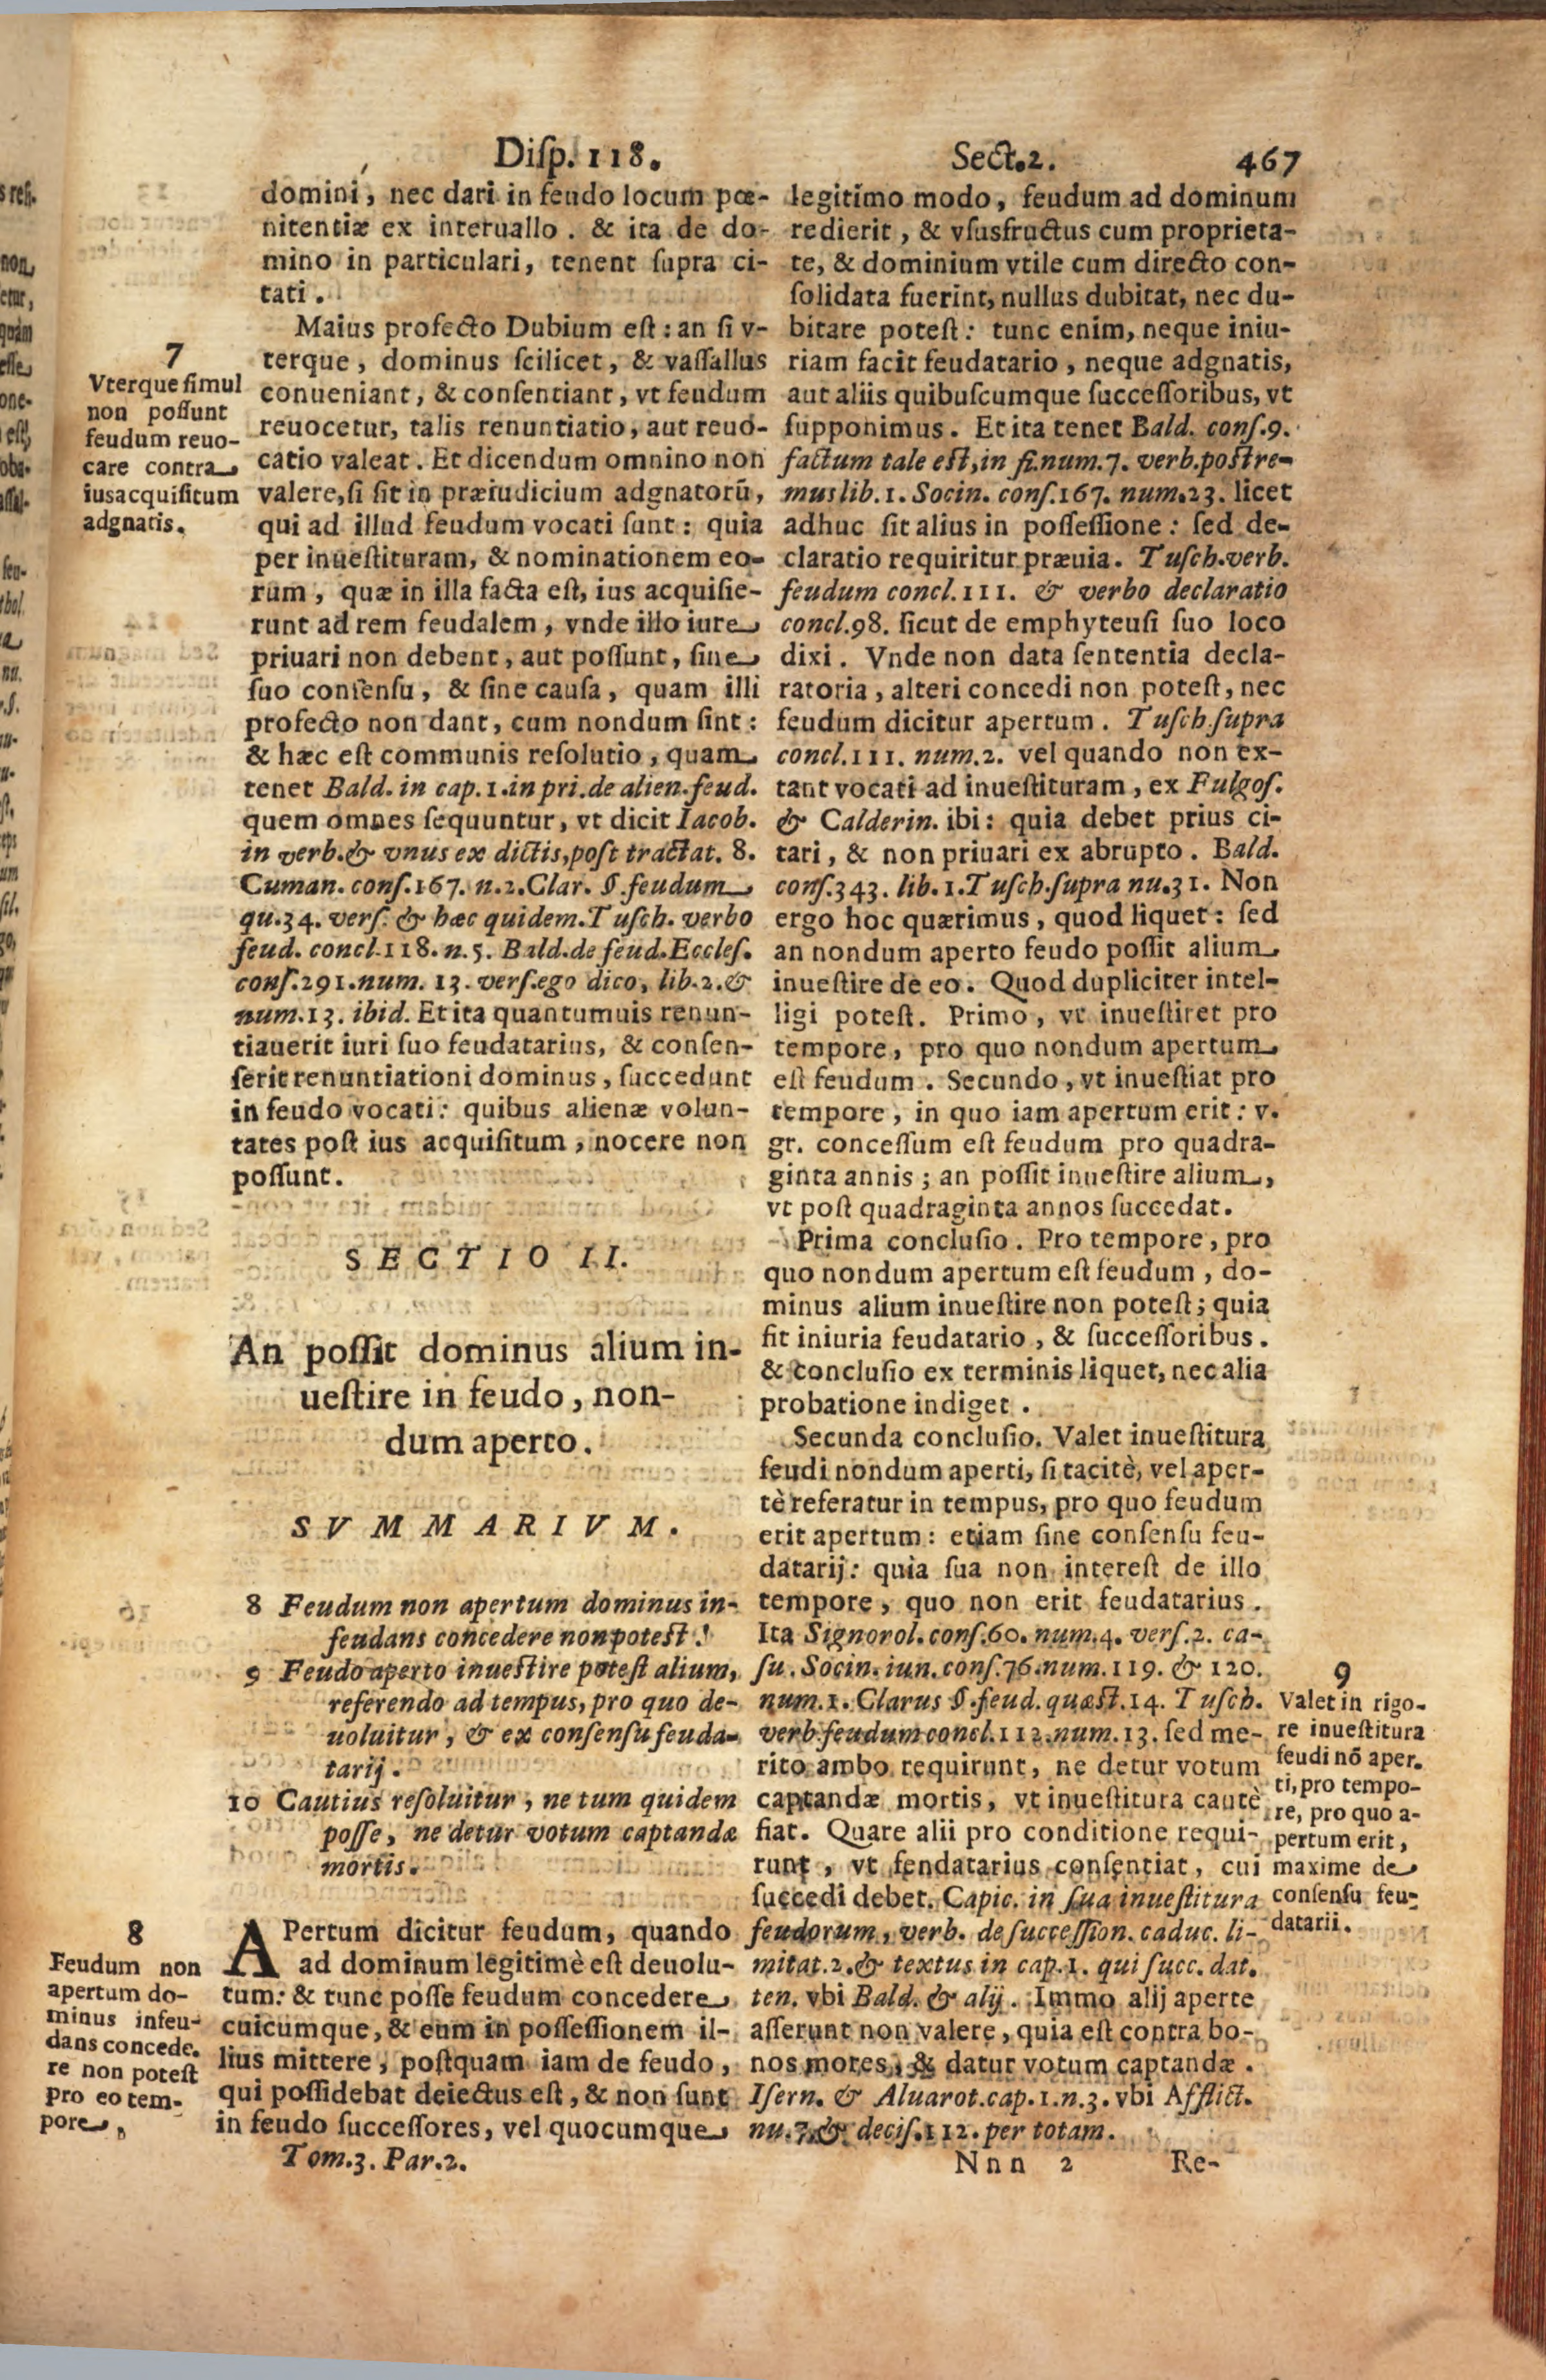 Diſp. 118.
Sect. 2.
467
domini, nec dari in feudo locum pœ-
nitentiæ ex interuallo. & ita de do-
mino in particulari, tenent ſupra ci-
tati.
Maius profecto Dubium eſt: an ſi v-
terque, dominus ſcilicet, & vaſſallus
conueniant, & conſentiant, vt feudum
reuocetur, talis renuntiatio, aut reuo-
catio valeat. Et dicendum omnino non
valere, ſi ſit in præiudicium adgnatorū,
qui ad illud feudum vocati ſunt: quia
per inueſtituram, & nominationem eo-
rum, quæ in illa facta eſt, ius acquiſie-
runt ad rem feudalem, vnde illo iure
priuari non debent, aut poſſunt, ſine
ſuo conſenſu, & ſine cauſa, quam illi
profecto non dant, cum nondum ſint:
& hæc eſt communis reſolutio, quam
tenet Bald. in cap. 1. in pri. de alien. feud.
quem omnes ſequuntur, vt dicit Iacob.
in verb. & vnus ex dictis, poſt tractat. 8.
Cuman. conſ. 167. n. 2. Clar. §. feudum
qu. 34. verſ. & hæc quidem. Tuſch. verbo
feud. concl. 118. n. 5. Bald. de feud. Eccleſ.
conſ. 291. num. 13. verſ. ego dico, lib. 2. &
num. 13. ibid. Et ita quantumuis renun-
tiauerit iuri ſuo feudatarius, & conſen-
ſerit renuntiationi dominus, ſuccedunt
in feudo vocati: quibus alienæ volun-
tates poſt ius acquiſitum, nocere non
poſſunt.
7
Vterque ſimul
non poſſunt
feudum reuo-
care contra
ius acquiſitum
adgnatis.
SECTIO II.
An poſſit dominus alium in-
ueſtire in feudo, non-
dum aperto.
SVMMARIVM.
8 Feudum non apertum dominus in-
feudans concedere non poteſt.
9 Feudo aperto inueſtire poteſt alium,
referendo ad tempus, pro quo de-
uoluitur, & ex conſenſu feuda-
tarij.
10 Cautius reſoluitur, ne tum quidem
poſſe, ne detur votum captandæ
mortis.
8
Feudum non
apertum do-
minus infeu-
dans concede-
re non poteſt
pro eo tem-
pore.
APertum dicitur feudum, quando
ad dominum legitimè eſt deuolu-
tum: & tunc poſſe feudum concedere
cuicumque, & eum in poſſeſſionem il-
lius mittere, poſtquam iam de feudo,
qui poſſidebat deiectus eſt, & non ſunt
in feudo ſucceſſores, vel quocumque
Tom. 3. Par. 2.
legitimo modo, feudum ad dominum
redierit, & vſusfructus cum proprieta-
te, & dominium vtile cum directo con-
ſolidata fuerint, nullus dubitat, nec du-
bitare poteſt: tunc enim, neque iniu-
riam facit feudatario, neque adgnatis,
aut aliis quibuſcumque ſucceſſoribus, vt
ſupponimus. Et ita tenet Bald. conſ. 9.
factum tale eſt, in fi. num. 7. verb. poſtre-
mus lib. 1. Socin. conſ. 167. num. 23. licet
adhuc ſit alius in poſſeſſione: ſed de-
claratio requiritur præuia. Tuſch. verb.
feudum concl. 111. & verbo declaratio
concl. 98. ſicut de emphyteuſi ſuo loco
dixi. Vnde non data ſententia decla-
ratoria, alteri concedi non poteſt, nec
feudum dicitur apertum. Tuſch. ſupra
concl. 111. num. 2. vel quando non ex-
tant vocati ad inueſtituram, ex Fulgoſ.
& Calderin. ibi: quia debet prius ci-
tari, & non priuari ex abrupto. Bald.
conſ. 343. lib. 1. Tuſch. ſupra nu. 31. Non
ergo hoc quærimus, quod liquet: ſed
an nondum aperto feudo poſſit alium
inueſtire de eo. Quod dupliciter intel-
ligi poteſt. Primo, vt inueſtiret pro
tempore, pro quo nondum apertum
eſt feudum. Secundo, vt inueſtiat pro
tempore, in quo iam apertum erit: v.
gr. conceſſum eſt feudum pro quadra-
ginta annis; an poſſit inueſtire alium,
vt poſt quadraginta annos ſuccedat.
Prima concluſio. Pro tempore, pro
quo nondum apertum eſt feudum, do-
minus alium inueſtire non poteſt; quia
fit iniuria feudatario, & ſucceſſoribus.
& concluſio ex terminis liquet, nec alia
probatione indiget.
Secunda concluſio. Valet inueſtitura
feudi nondum aperti, ſi tacitè, vel aper-
tè referatur in tempus, pro quo feudum
erit apertum: etiam ſine conſenſu feu-
datarij: quia ſua non intereſt de illo
tempore, quo non erit feudatarius.
Ita Signorol. conſ. 60. num. 4. verſ. 2. ca-
ſu. Socin. iun. conſ. 76. num. 119. & 120.
num. 1. Clarus §. feud. quæſt. 14. Tuſch.
verb. feudum concl. 112. num. 13. ſed me-
rito ambo requirunt, ne detur votum
captandæ mortis, vt inueſtitura cautè
fiat. Quare alii pro conditione requi-
runt, vt fendatarius conſentiat, cui
ſuccedi debet. Capic. in ſua inueſtitura
feudorum, verb. de ſucceſſion. caduc. li-
mitat. 2. & textus in cap. 1. qui ſucc. dat.
ten. vbi Bald. & alij. Immo alij aperte
aſſerunt non valere, quia eſt contra bo-
nos mores, & datur votum captandæ.
Iſern. & Aluarot. cap. 1. n. 3. vbi Afflict.
nu. 7. & deciſ. 112. per totam.
9
Valet in rigo-
re inueſtitura
feudi nō aper-
ti, pro tempo-
re, pro quo a-
pertum erit,
maxime de
conſenſu feu-
datarii.
Nnn 2
Re-